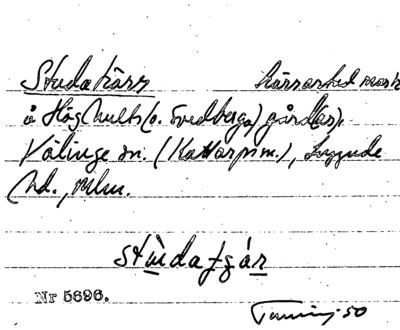 Studakärr kärrartad mark
å Höghults (o. Svedberga) gård(ar).
Välinge sn. (Kattarp m.), Luggude
hd., Mlm.
stùdaʃʒár
Nr 5696.
50